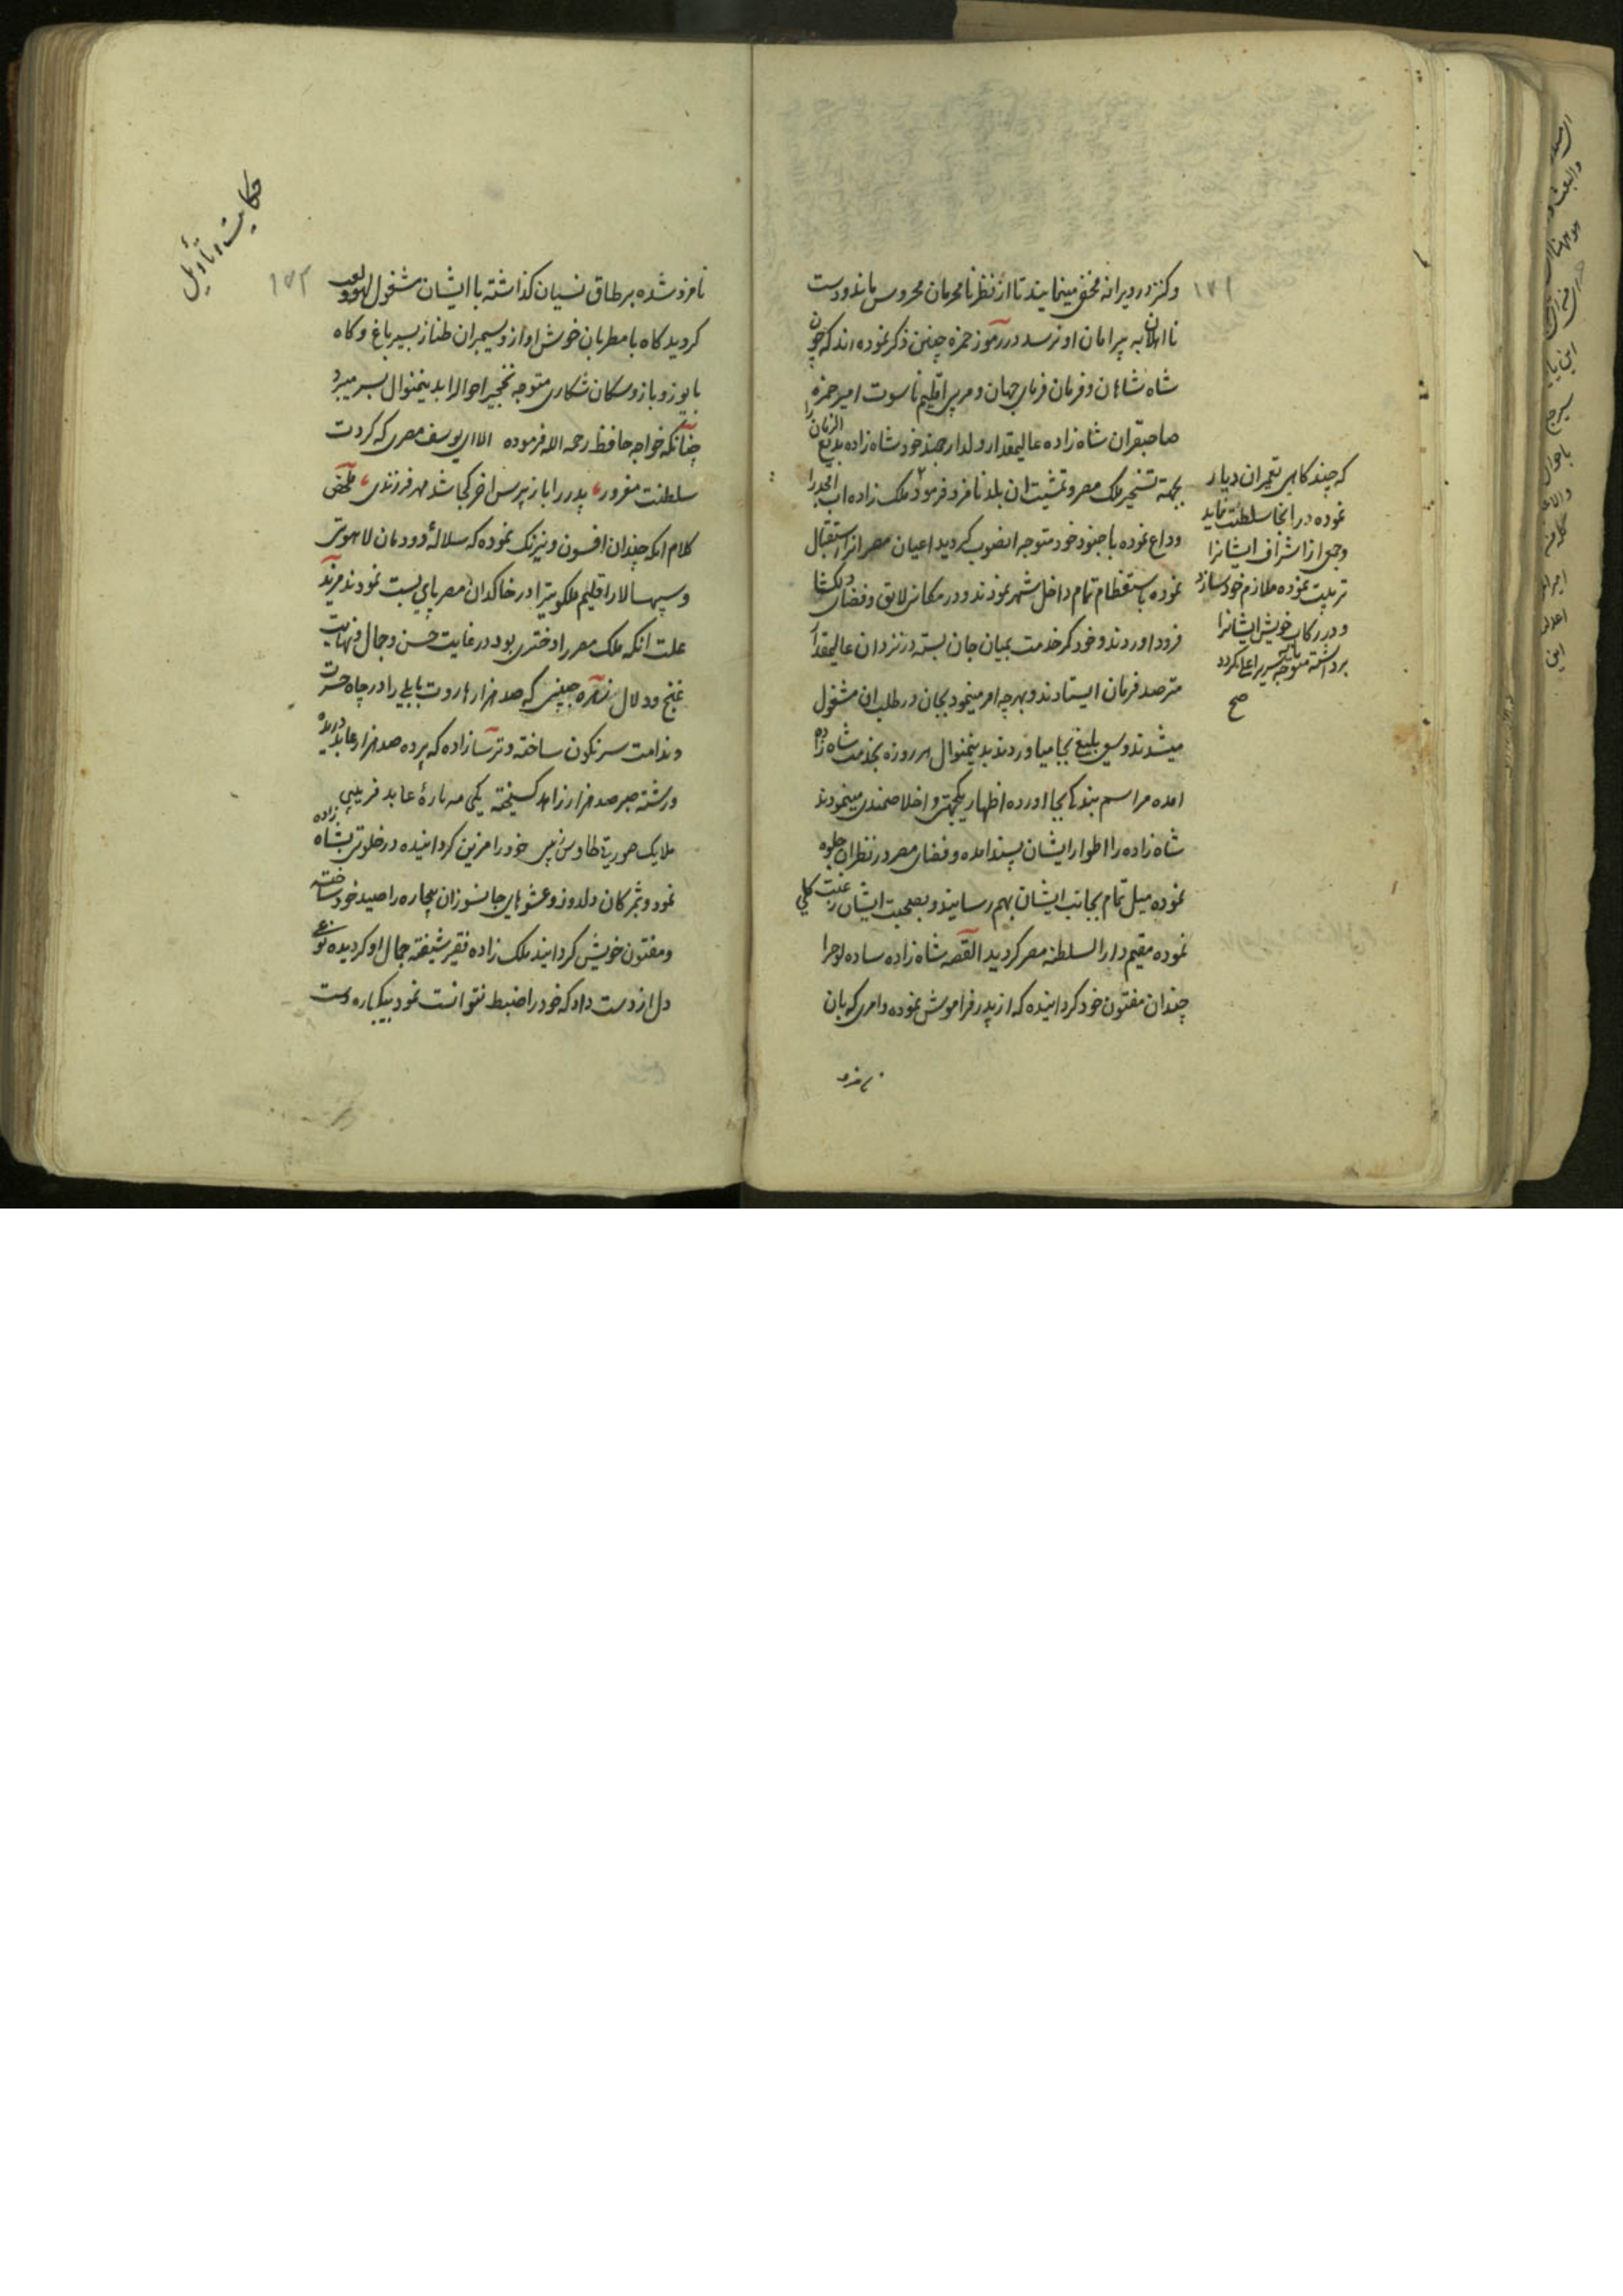 ۱۷۱
وکنز در ویرانه مخفی مینمایند تا از نظر نامحرمان محروس ماند و دست
نااهلان به پیرامان او نرسد در رموز حمزه چنین ذکر نموده اند که چون
شاه شاهان و فرمان فرمای جهان و مربی اقلیم ناسوت امیر حمزه
صاحبقران شاه زاده عالیمقدار و ولد ارجمند خود شاه زاده بدیع الزمان را
بجهة تسخیر ملک مصر و تمشیت ان بلد نامزد فرمود ملک زاده اب امجد را
وداع نموده با جنود خود متوجه انصوب کردید اعیان مصر انرا استقبال
نموده تمام داخل شهر نمودند و در مکانی لایق و فضای دلکشا
فرود اوردند و خود کمر خدمت بمیان جان بسته در نزد ان عالیمقدار
مترصد فرمان ایستادند و بهر چه امر مینمود بجان در طلب ان مشغول
میشدند و سعی بلیغ بجا میاوردند بدینمنوال هر روزه بخدمت شاه زاده
امده مراسم بندکی بجا اورده اظهار یکجهتی و اخلاصمندی مینمودند
شاه زاده را اطوار ایشان پسند امده و فضای مصر در نظر ان جلوه
نموده میل تمام بجانب ایشان بهم رسانید و بصحبت ایشان رغبت کلی
نموده مقیم دار السلطنه مصر کردید القصه شاه زاده ساده لوحرا
چندان مفتون خود کردانیده که از پدر فراموش نموده و امری که بان
نامزد
که چند کاهی بتعمیر ان دیار
نموده در انجا سلطنت نماید
و جمعی از اشراف ایشانرا
تربیت نموده ملازم خود سازد
و در رکاب خویش ایشانرا
برداشته متوجه سریر اعلی کردد
صح
حکایت و تأویل
۱۷۲
نامزد شده بر طاق نسیان کذاشته با ایشان مشغول لهو و لعب
کردید کاه با مطربان خوش اواز و سیمبران طناز بسیر باغ و کاه
با یوز و باز و سکان شکاری متوجه نخجیر احوالرا بدینمنوال بسر میبرد
چنانکه خواجه حافظ رحمه الله فرموده الا ای یوسف مصری که کردت
سلطنت مغرور پدر را باز پرس اخر کجا شد مهر فرزندی ملخص
کلام انکه چندان افسون و نیرنک نموده که سلالهٔ دودمان لاهوتی
و سپهسالار اقلیم ملکوتیرا در خاکدان مصر پای بست نمودند مزید
علت انکه ملک مصر را دختری بود در غایت حسن و جمال و نهایت
غنج و دلال زهره جبینی که صد هزار هاروت بابلی را در چاه حسرت
و ندامت سرنکون ساخته و ترسازاده که پرده صد هزار عابد دریده
و رشته صبر صد هزار زاهد کسیخته یکی مه پارهٔ عابد فریبی
ملایک صورتی طاوس زیبی خود را مزین کردانیده در خلوتی بشاه زاده
نمود و بمژکان دلدوز و عشوهای جانسوز ان بیچاره را صید خود ساخته
و مفتون خویش کردانید ملک زاده فقیر شیفته جمال او کردیده نوعی
دل از دست داد که خود را ضبط نتوانست نمود بیکباره دست